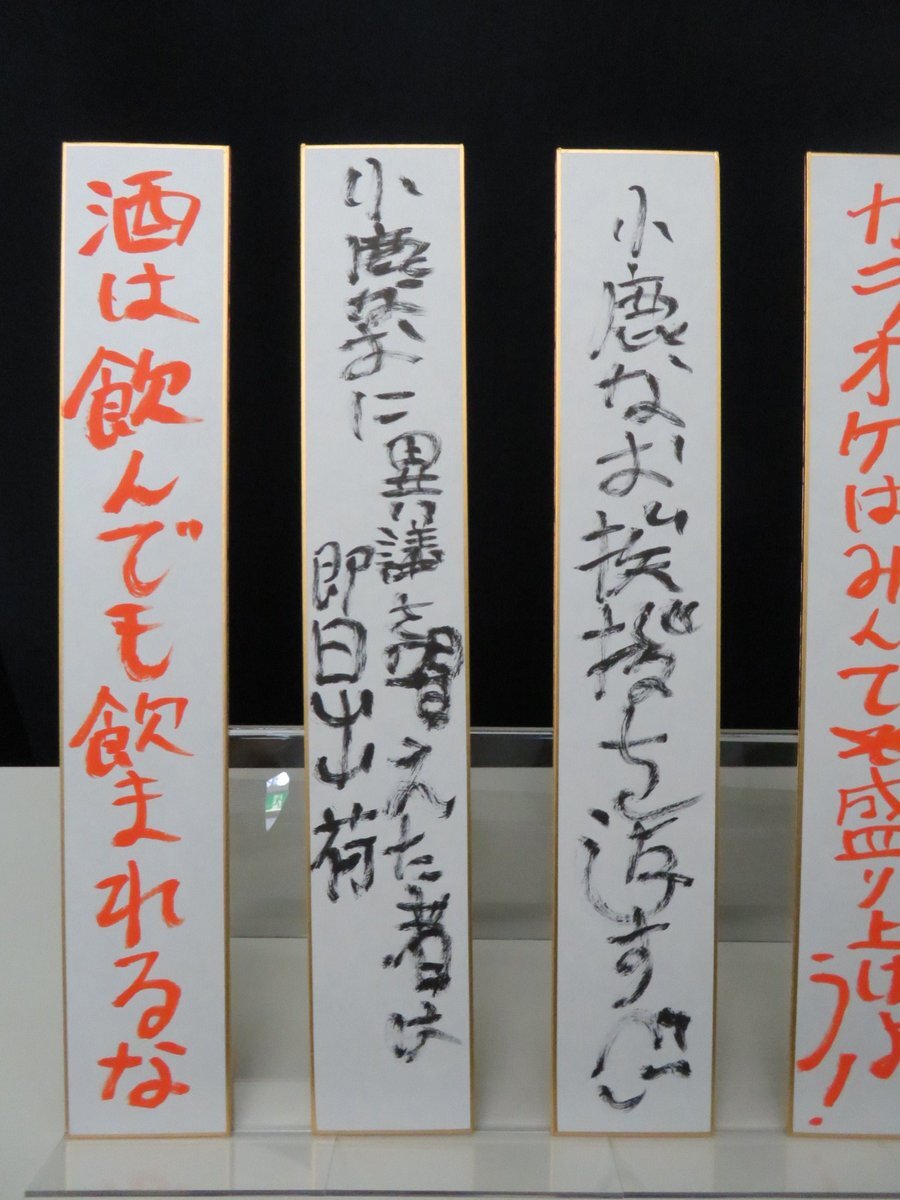 カラオケはみんて盛り上げよ
う!
小鹿なお挨拶
小鹿なおに異議を唱えた者は
即日出荷
酒は飲んでも飲まれるな